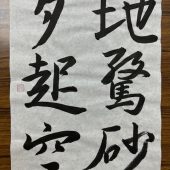 地驚砂
夕起空